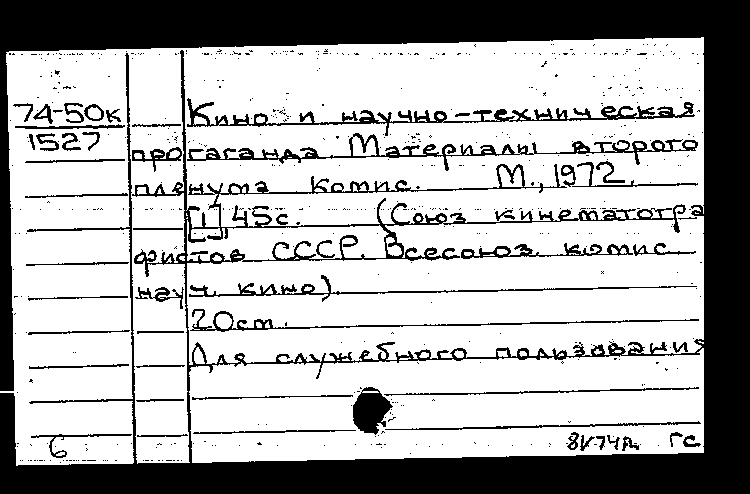 74-50к
1527
Кино и научно-техническая
пропаганда. Материалы второго
пленума комис. М., 1972.
[1], 45с. (Союз кинематогра
фистов СССР. Всесоюз. комис.
науч. кино).
20 cm.
Для служебного пользования
6
8V74г. ГС